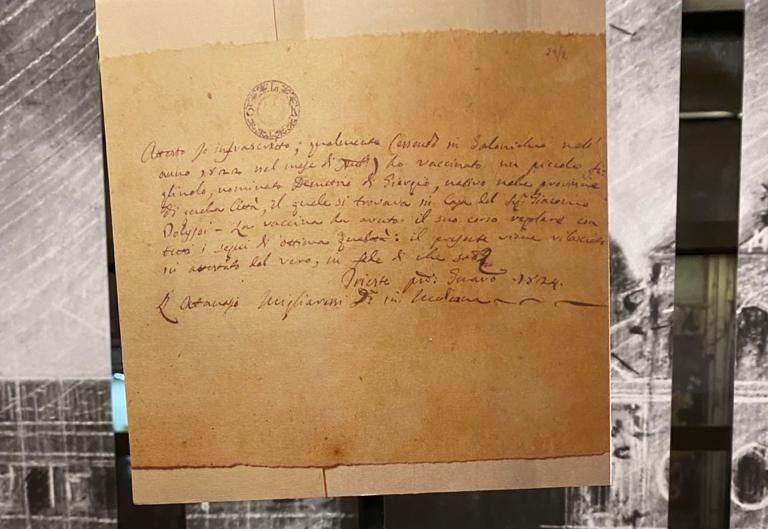 24/2
Attesto Io infrascritto; qualmente Essendo in Salonichio nell'
anno 1822 nel mese di ho vaccinato un piccolo
gliuolo, nominato Demetrio di Giorgio, nativo nelle provincie
di quella Città, il quale si trovava in Casa del Sigr Giacomo
La vaccina ha avuto il suo corso regolare con
tutti i segni di ottima qualità: il presente viene rilasciato
in attestato del vero, in fede di che
Trieste 1824.
Atanasio Migliaressi Dr in Medicina